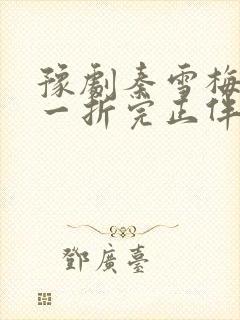 豫劇秦雪梅
一折完正伴
鄧廣臺